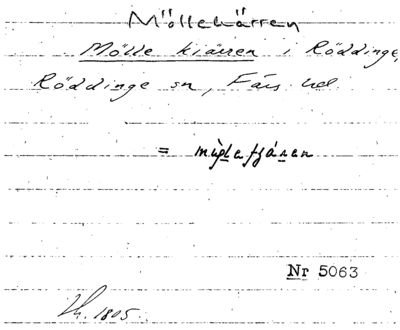 Möllekärren
Mölle kiärren i Röddinge,
Röddinge sn, Färs hd.
=
Nr 5063
1805.